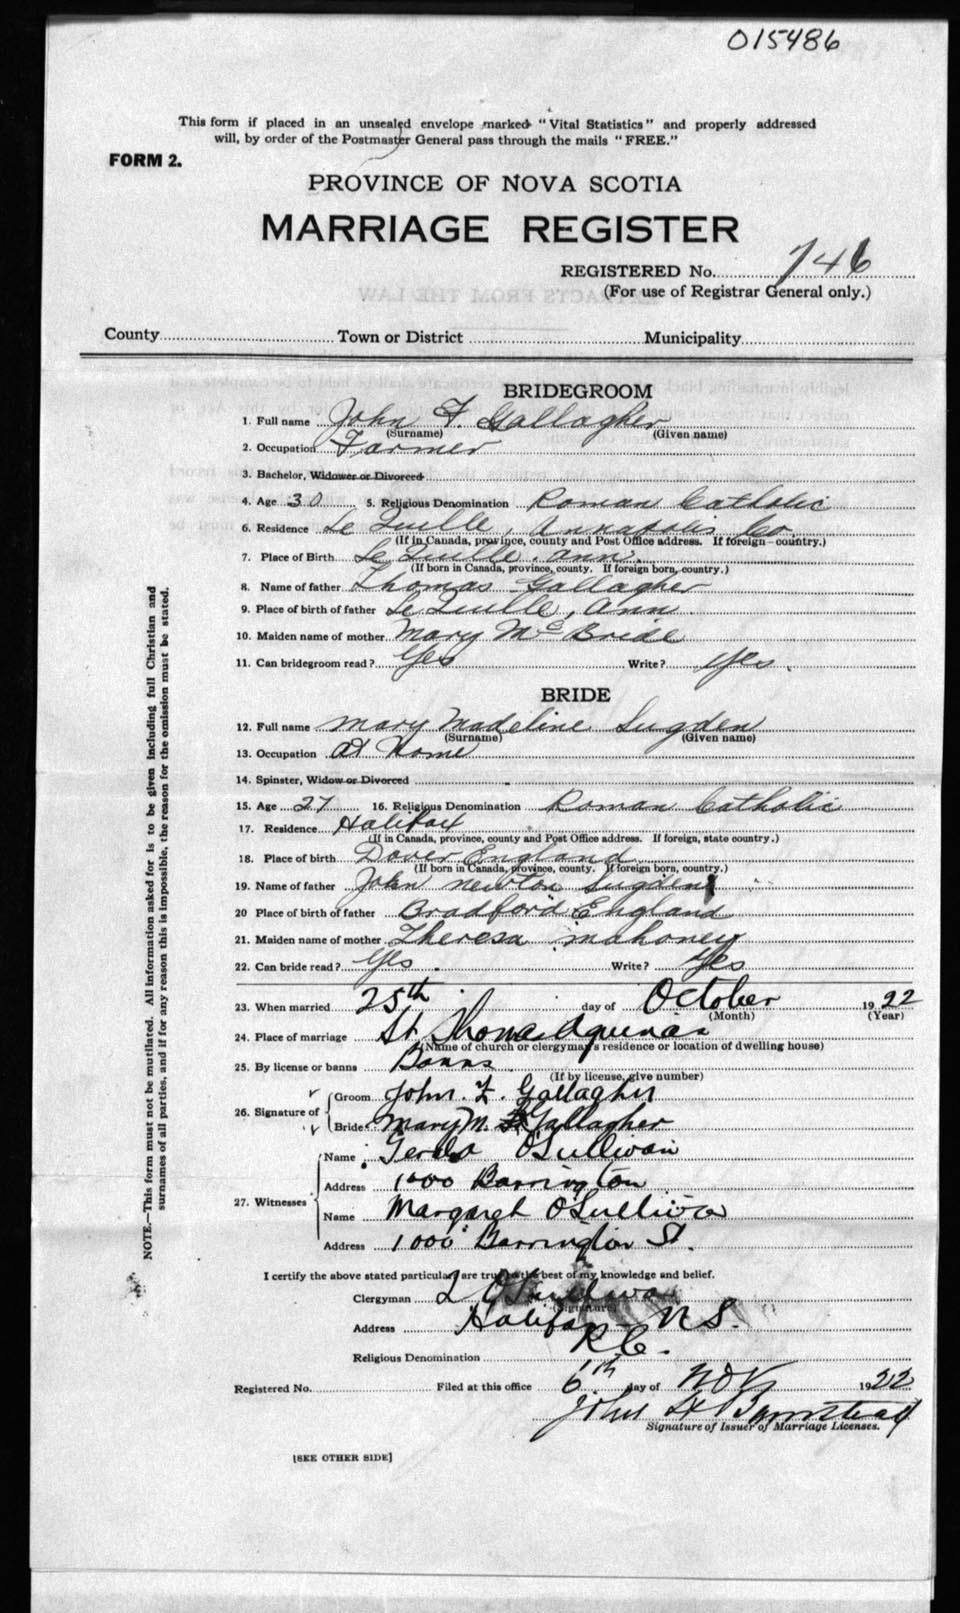 015486
This form if placed in an unsealed envelope marked "Vital Statistics" and properly addressed
will, by order of the Postmaster General pass through the mails "FREE."
FORM 2.
PROVINCE OF NOVA SCOTIA
MARRIAGE REGISTER
REGISTERED No. 746
(For use of Registrar General only.)
County Town or District Municipality
BRIDEGROOM
1. Full name John F. Gallagher
(Surname) (Given name)
2. Occupation Farmer
3. Bachelor, Widower or Divorced
4. Age 30 5. Religious Denomination Roman Catholic
6. Residence Le Quille, Annapolis Co.
(If in Canada, province, county and Post Office address. If foreign—country.)
7. Place of Birth Le Quille. Ann.
(If born in Canada, province, county. If foreign born, country.)
8. Name of father Thomas Gallagher
9. Place of birth of father Le Quille, Ann.
10. Maiden name of mother Mary McBride
11. Can bridegroom read? Yes Write? Yes.
BRIDE
12. Full name Mary Madeline Sugden
(Surname) (Given name)
13. Occupation At Home
14. Spinster, Widow or Divorced
15. Age 27 16. Religious Denomination Roman Catholic
17. Residence Halifax
(If in Canada, province, county and Post Office address. If foreign, state country.)
18. Place of birth Dover England
(If born in Canada, province, county. If foreign born, country.)
19. Name of father John Newton Sugden
20 Place of birth of father Bradford England
21. Maiden name of mother Theresa Mahoney
22. Can bride read? Yes. Write? Yes
23. When married 25th day of October 1922
(Month) (Year)
24. Place of marriage St Thomas Aquinas
(Name of church or clergyman's residence or location of dwelling house)
25. By license or banns Banns
(If by license, give number)
26. Signature of Groom John. F. Gallagher
Bride Mary M. Gallagher
27. Witnesses
Name O'Sullivan
Address 1000 Barrington
Name Margaret O'Sullivan
Address 1000 Barrington St.
I certify the above stated particulars are true to the best of my knowledge and belief.
Clergyman O'Sullivan
(Signature)
Address Halifax N.S.
Religious Denomination R.C.
Registered No. Filed at this office 6th day of Nov 1922
John
Signature of Issuer of Marriage Licenses.
[SEE OTHER SIDE]
NOTE.—This form must not be mutilated. All information asked for is to be given including full Christian and
surnames of all parties, and if for any reason this is impossible, the reason for the omission must be stated.